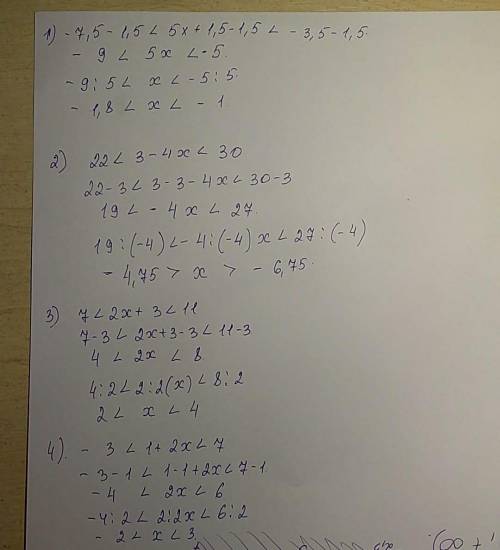 1) -7,5 - 1,5 < 5x + 1,5 - 1,5 < - 3,5 - 1,5.
- 9 < 5x < -5.
- 9 : 5 < x < -5 : 5.
- 1,8 < x < - 1.
2) 22 < 3 - 4x < 30
22 - 3 < 3 - 3 - 4x < 30 - 3
19 < - 4x < 27.
19 : (-4) < - 4 : (-4) x < 27 : (-4)
- 4,75 > x > - 6,75.
3) 7 < 2x + 3 < 11
7 - 3 < 2x + 3 - 3 < 11 - 3
4 < 2x < 8
4 : 2 < 2 : 2(x) < 8 : 2
2 < x < 4
4). - 3 < 1 + 2x < 7
- 3 - 1 < 1 - 1 + 2x < 7 - 1.
- 4 < 2x < 6
-4 : 2 < 2 : 2x < 6 : 2
- 2 < x < 3.
+ ∞).